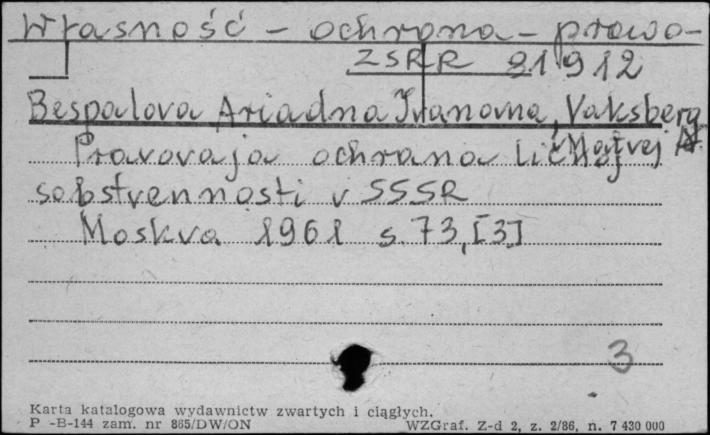 Własność - ochrona - prawo -
ZSRR 81912
Bespalova Ariadna Ivanovna, Vaksberg
Pravovaja ochrana ličnoj Matvej A.
sobstvennosti v SSSR
Moskva 1961 s. 73, [3]
3
Karta katalogowa wydawnictw zwartych i ciągłych.
P -B-144 zam. nr 865/DW/ON WZGraf. Z-d 2, z. 2/86, n. 7 430 000